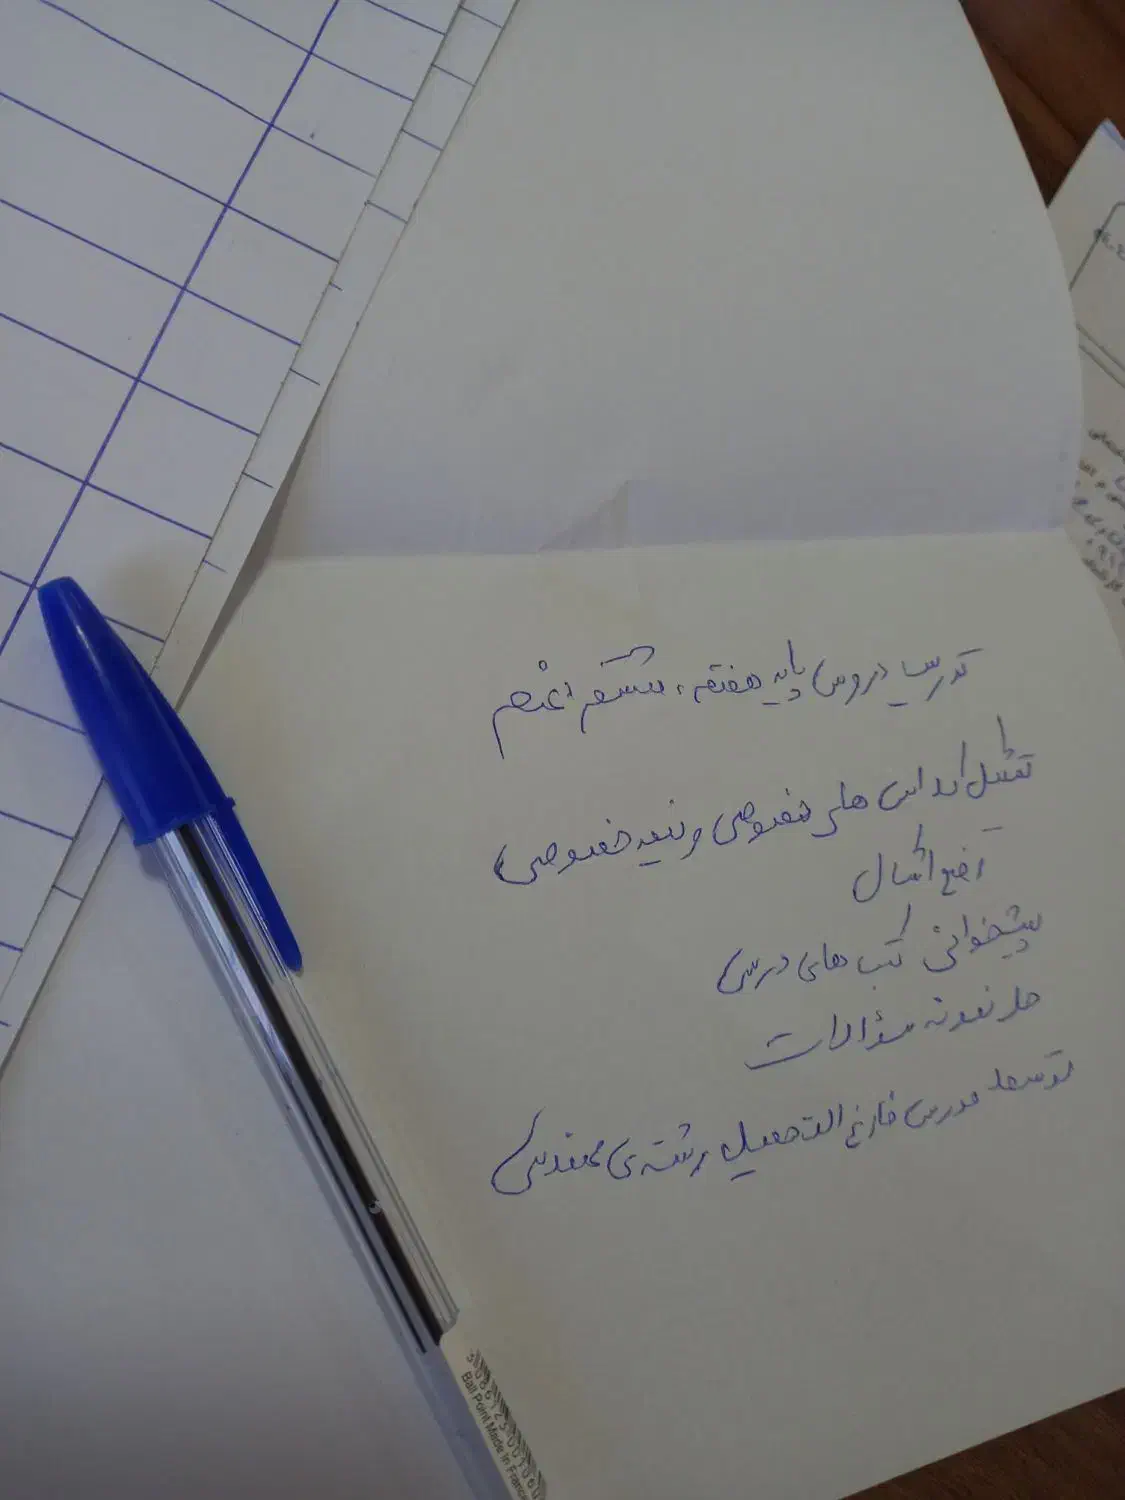 تدریس دروس پایه هفتم، هشتم، نهم
تشکیل کلاس های خصوصی و نیمه خصوصی
رفع اشکال
پیشخوانی کتب های درسی
حل نمونه سؤالات
توسط مدرس فارغ التحصیل رشته ی مهندسی
Ball Point Made In France